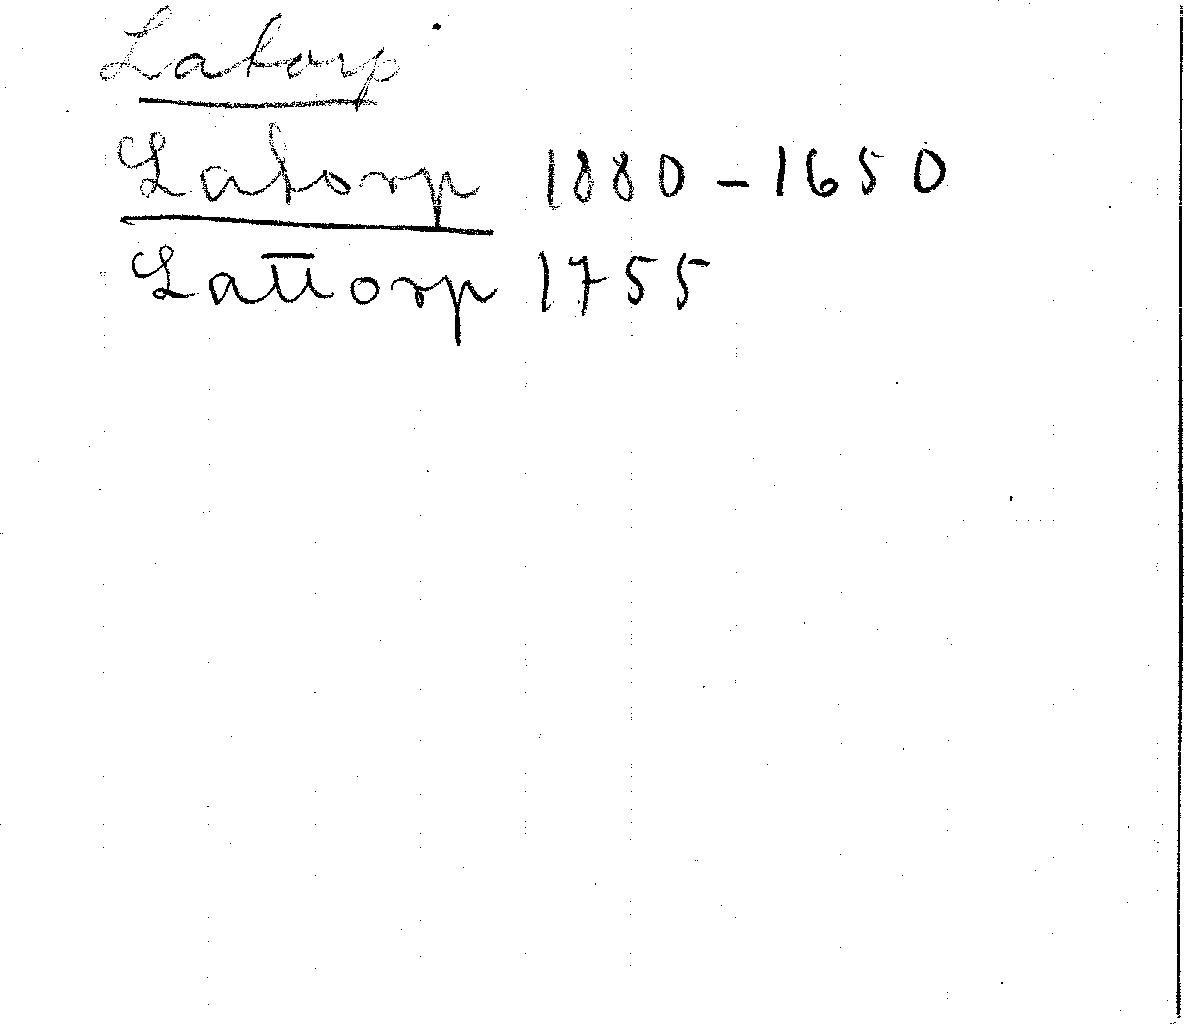 Latorp
Latorp 1880-1650
Lattorp 1755